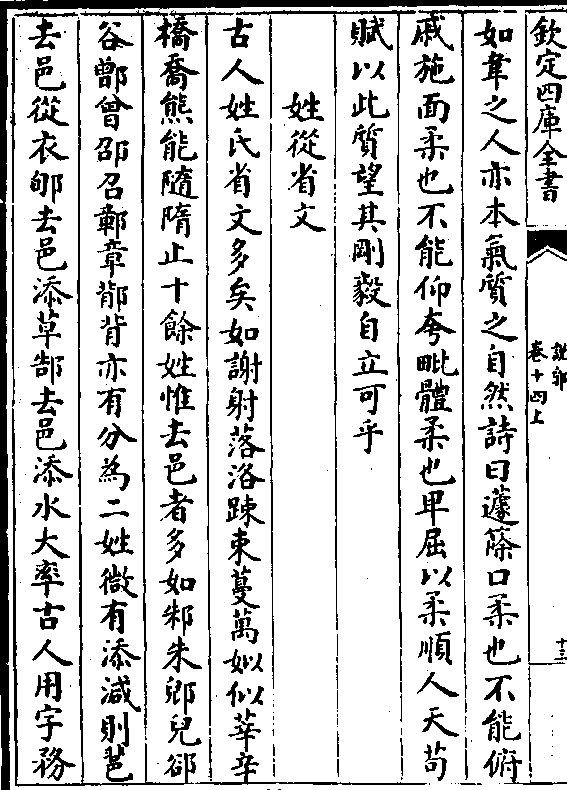 欽定四庫全書
説郛
卷十四上
十三
如韋之人亦本氣質之自然詩曰蘧篨口柔也不能俯
戚施面柔也不能仰夸毗體柔也卑屈以柔順人天苟
賦以此質望其剛毅自立可乎
姓從省文
古人姓氏省文多矣如謝射落洛踈束蔓萬姒似莘辛
橋喬熊能隨隋止十餘姓惟去邑者多如邾朱郳兒郤
谷鄫曾邵召鄣章鄁背亦有分為二姓微有添減則邕
去邑從衣郇去邑添草郜去邑添水大率古人用字務